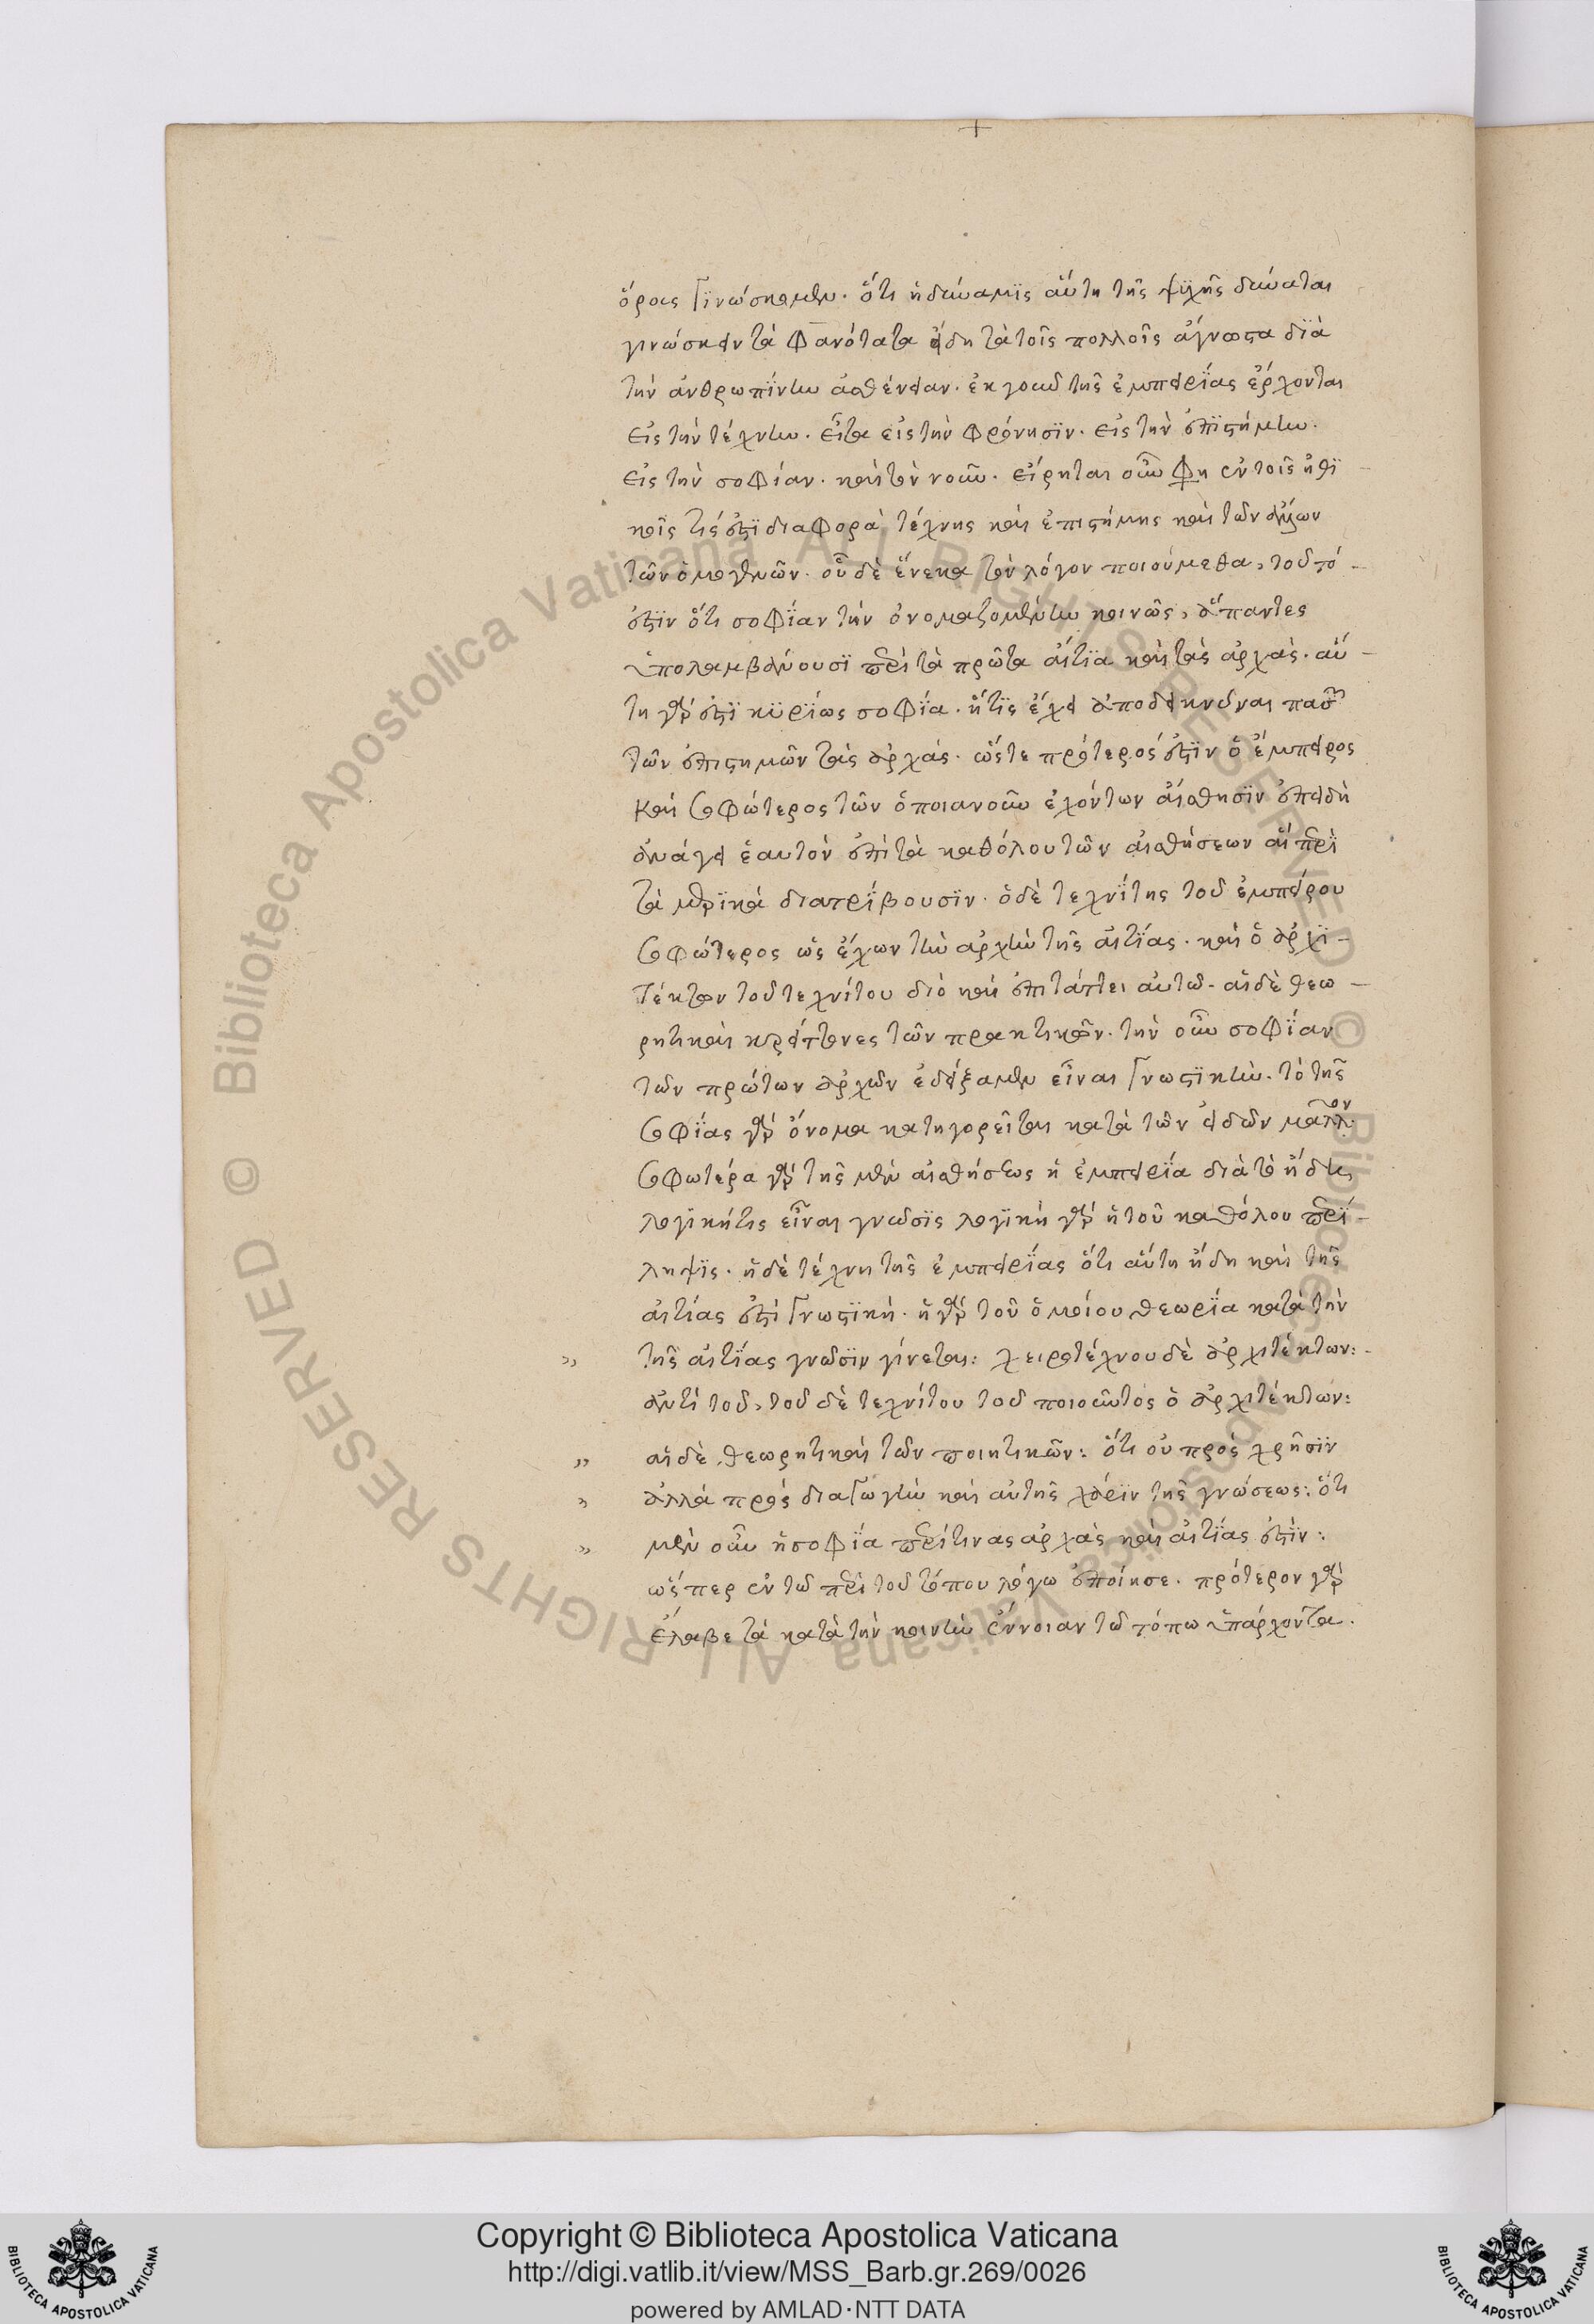 +
ὅρους γινώσκομεν. ὅτι ἡ δύναμϊς αὕτη τῆς ψυχῆς δύναται
γινώσκειν τὰ φανότατα εἴδη τὰ τοῖς πολλοῖς ἄγνωστα δϊὰ
τὴν ἀνθρωπΐνην ἀσθένειαν. ἐκ γοῦν τῆς ἐμπειρΐας ἔρχονται
εἰς τὴν τέχνην. εἶτα εἰς τὴν φρόνησϊν. εἰς τὴν ἐπϊστήμην.
εἰς τὴν σοφίαν. καὶ τὸν νοῦν. εἴρηται οὖν φη ἐν τοῖς ἠθϊ-
κοῖς τίς ἐστϊ διαφορὰ τέχνης καὶ ἐπιστήμης καὶ τῶν ἄλλων
τῶν ὁμογενῶν. οὗ δὲ ἕνεκα τὸν λόγον ποιούμεθα, τοῦτό-
ἐστϊν ὅτι σοφΐαν τὴν ὀνομαζομένην κοινῶς, ἅπαντες
ὑπολαμβάνουσϊ περὶ τὰ πρῶτα αἴτϊα καὶ τὰς ἀρχὰς. αὕ-
τη γάρ ἐστϊ κϋρΐως σοφΐα. ἥτϊς ἔχει ἀποδεικνῦναι πασῶν
τῶν ἐπιστημῶν τὰς ἀρχάς. ὥστε πρότερός ἐστϊν ὁ ἔμπειρος
καὶ σοφώτερος τῶν ὁποιανοῦν ἐχόντων αἴσθησϊν ἐπειδὴ
ἀνάγει ἑαυτὸν ἐπὶ τὰ καθόλου τῶν αἰσθήσεων αἳ περὶ
τὰ μερϊκὰ διατρΐβουσϊν. ὁ δὲ τεχνΐτης τοῦ ἐμπείρου
σοφώτερος ὡς ἔχων τὴν ἀρχὴν τῆς αἰτΐας. καὶ ὁ ἀρχϊ-
τέκτων τοῦ τεχνίτου διὸ καὶ ἐπιτάττει αὐτῶ. αἱ δὲ θεω-
ρητικαὶ κρείττονες τῶν πρακτικῶν. τὴν οὖν σοφΐαν
τῶν πρώτων ἀρχῶν ἐδείξαμεν εἶναι γνωστϊκὴν. τὸ τῆς
σοφΐας γὰρ ὄνομα κατηγορεῖται κατὰ τῶν εἰδῶν μᾶλλον
σοφωτέρα γὰρ τῆς μὲν αἰσθήσεως ἡ ἐμπειρΐα διὰ τὸ ἤδη
λογϊκή τις εἶναι γνῶσϊς λογϊκὴ γὰρ ἡ τοῦ καθόλου περΐ-
ληψϊς. ἡ δὲ τέχνη τῆς ἐμπειρΐας ὅτι αὕτη ἤδη καὶ τῆς
αἰτίας ἐστὶ γνωστϊκή. ἡ γὰρ τοῦ ὁμοίου θεωρΐα κατὰ τὴν
„ τῆς αἰτΐας γνῶσϊν γίνεται: χειροτέχνου δὲ ἀρχιτέκτων:-
ἀντὶ τοῦ, τοῦ δὲ τεχνίτου τοῦ ποιοῦντος ὁ ἀρχιτέκτων:
„ αἱ δὲ θεωρητικαὶ τῶν ποιητικῶν: ὅτι οὐ πρὸς χρῆσϊν
„ ἀλλὰ πρὸς διαγωγὴν καὶ αὐτῆς χάρϊν τῆς γνώσεως: ὅτι
„ μὲν οὖν ἡ σοφΐα περὶ τινας ἀρχὰς καὶ αἰτΐας ἐστΐν:
ὥσπερ ἐν τῶ περὶ τοῦ τόπου λόγω ἐποίησε. πρότερον γὰρ
ἔλαβε τὰ κατὰ τὴν κοινὴν ἔννοιαν τῶ τόπω ὑπάρχοντα.
© Biblioteca Apostolica Vaticana ALL RIGHTS RESERVED © Biblioteca Apostolica Vaticana ALL RIGHTS RESERVED
Copyright © Biblioteca Apostolica Vaticana
http://digi.vatlib.it/view/MSS_Barb.gr.269/0026
powered by AMLAD·NTT DATA
BIBLIOTECA APOSTOLICA VATICANA
BIBLIOTECA APOSTOLICA VATICANA